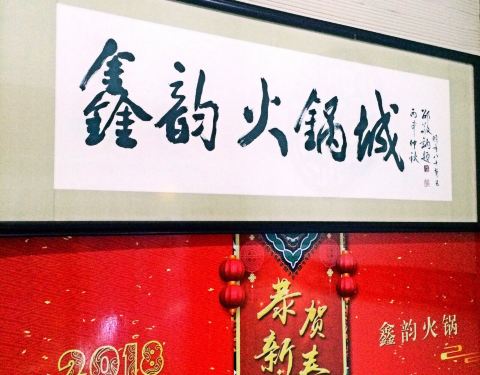 鑫韵火锅城
恭贺
新春
鑫韵火锅
2018